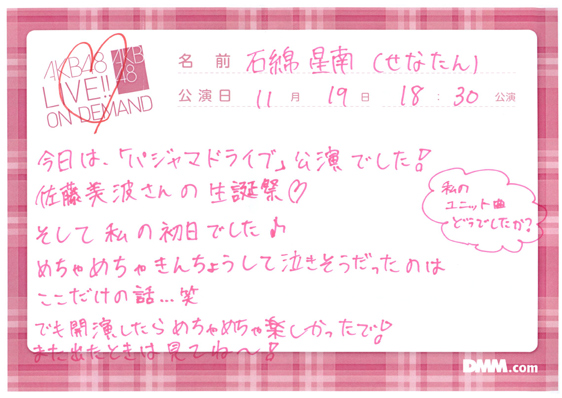 AKB48
LIVE!!
ON DEMAND
AKB
48
名前 石綿星南(せなたん)
公演日 11月 19日 18:30 公演
今日は、「パジャマドライブ」公演でした!
佐藤美波さんの生誕祭♡
そして私の初日でした♪
めちゃめちゃきんちょうして泣きそうだったのは
ここだけの話...笑
でも開演したらめちゃめちゃ楽しかったで!
また出たときは見てね〜!
私の
ユニット曲
どうでしたか?
DMM.com